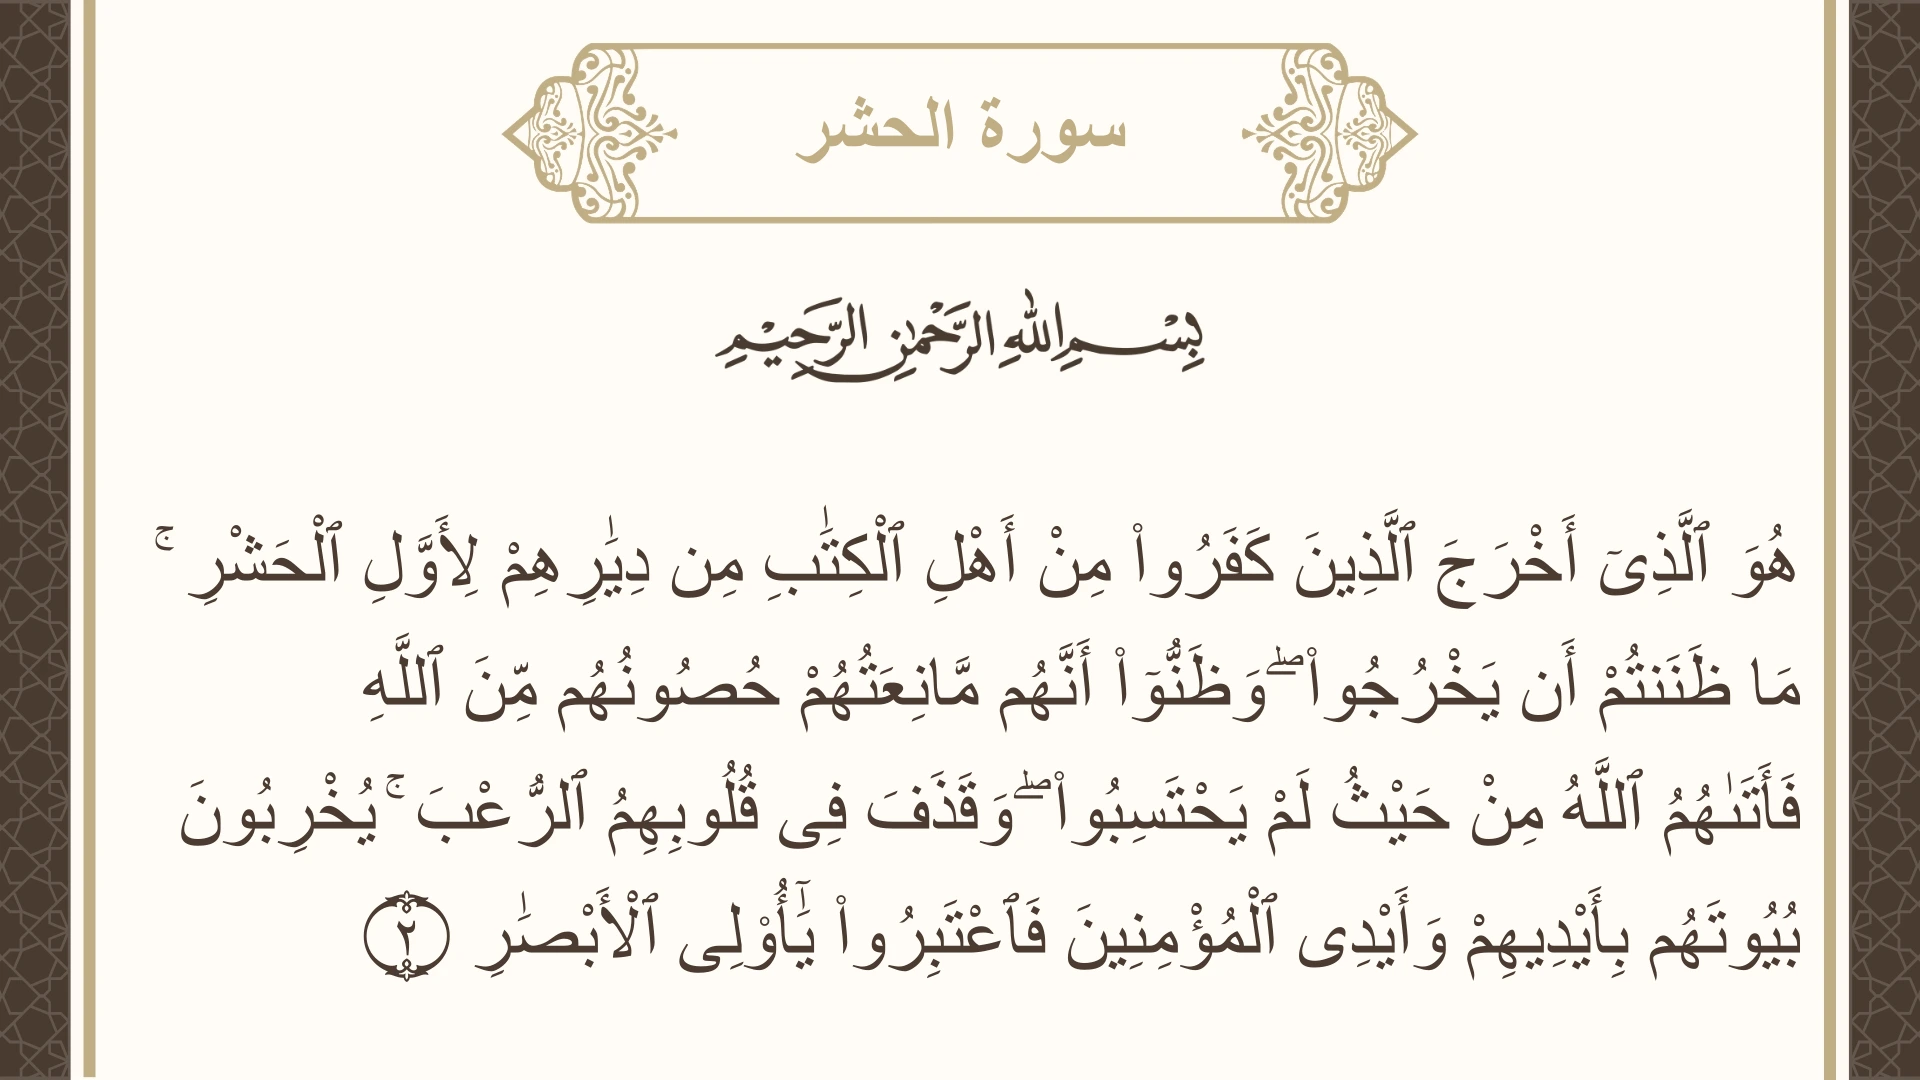 سورة الحشر
بِسْمِ اللهِ الرَّحْمٰنِ الرَّحِيْمِ
هُوَ ٱلَّذِىٓ أَخْرَجَ ٱلَّذِينَ كَفَرُوا۟ مِنْ أَهْلِ ٱلْكِتَـٰبِ مِن دِيَـٰرِهِمْ لِأَوَّلِ ٱلْحَشْرِ ۚ
مَا ظَنَنتُمْ أَن يَخْرُجُوا۟ ۖ وَظَنُّوٓا۟ أَنَّهُم مَّانِعَتُهُمْ حُصُونُهُم مِّنَ ٱللَّهِ
فَأَتَىٰهُمُ ٱللَّهُ مِنْ حَيْثُ لَمْ يَحْتَسِبُوا۟ ۖ وَقَذَفَ فِى قُلُوبِهِمُ ٱلرُّعْبَ ۚ يُخْرِبُونَ
بُيُوتَهُم بِأَيْدِيهِمْ وَأَيْدِى ٱلْمُؤْمِنِينَ فَٱعْتَبِرُوا۟ يَـٰٓأُو۟لِى ٱلْأَبْصَـٰرِ ٢